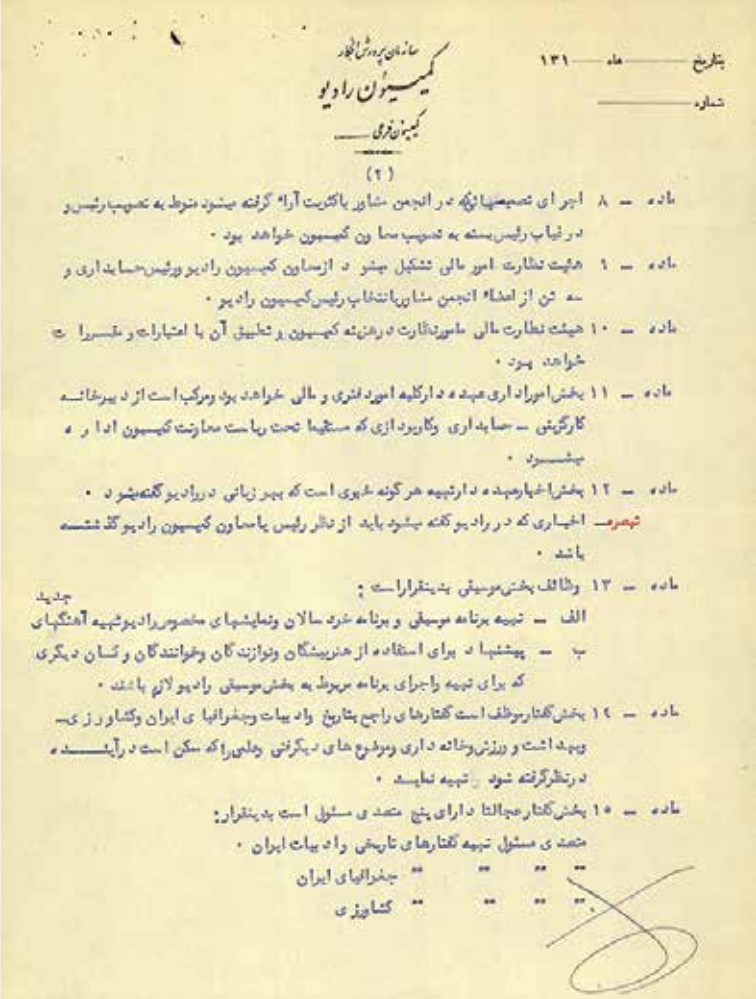 سازمان پرورش افکار
کمیسیون رادیو
کمیسیون فرعی
بتاریخ ماه ۱۳۱
شماره
(۲)
ماده ــ ۸ اجرای تصمیمهائیکه در انجمن مشاور باکثریت آراء گرفته میشود منوط به تصویب رئیس و
در غیاب رئیس بسته به تصویب معاون کمیسیون خواهد بود ۰
ماده ــ ۹ هئیت نظارت امور مالی تشکیل میشود ازمعاون کمیسیون رادیو ورئیس حسابداری و
سه تن از اعضاء انجمن مشاور بانتخاب رئیس کمیسیون رادیو ۰
ماده ــ ۱۰ هیئت نظارت مالی مامورنظارت درهزینه کمیسیون و تطبیق آن با اعتبارات و مقررات
خواهد بود ۰
ماده ــ ۱۱ بخش اموراداری عهده دارکلیه اموردفتری و مالی خواهد بود ومرکب است از دبیرخانه
کارگزینی ــ حسابداری وکارپردازی که مستقیما تحت ریاست معاونت کمیسیون اداره
میشود ۰
ماده ــ ۱۲ بخش اخبارعهده دارتهیه هرگونه خبری است که بهر زبانی دررادیو گفته شود ۰
تبصره ــ اخباری که در رادیو گفته میشود باید از نظر رئیس یامعاون کمیسیون رادیو گذشته
باشد ۰
ماده ــ ۱۳ وظائف بخش موسیقی بدینقراراست :
الف ــ تهیه برنامه موسیقی و برنامه خردسالان ونمایشهای مخصوص رادیوتهیه آهنگهای جدید
ب ــ پیشنهاد برای استفاده از هنرپیشگان ونوازندگان وخوانندگان و کسان دیگری
که برای تهیه واجرای برنامه مربوط به بخش موسیقی رادیو لازم باشند ۰
ماده ــ ۱۴ بخش گفتارموظف است گفتارهای راجع بتاریخ وادبیات وجغرافیای ایران وکشاورزی ــ
وبهداشت و ورزش وخانه داری وموضوع های دیگرفنی وعلمی راکه ممکن است درآینده
درنظرگرفته شود را تهیه نماید ۰
ماده ــ ۱۵ بخش گفتار عجالتا دارای پنج متصدی مسئول است بدینقرار:
متصدی مسئول تهیه گفتارهای تاریخی وادبیات ایران ۰
" " " " جغرافیای ایران
" " " " کشاورزی